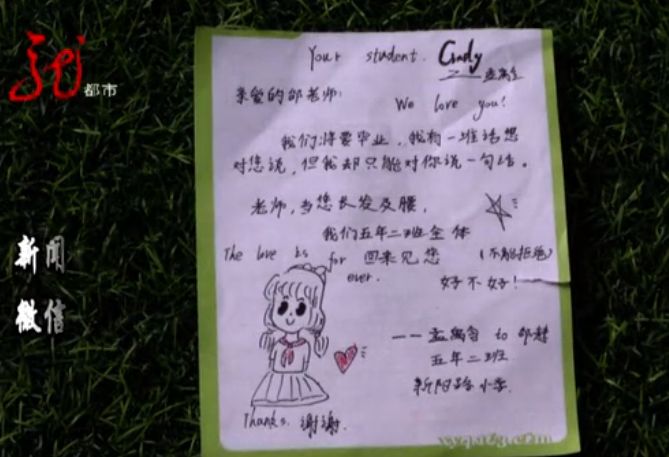 龙江
都市
新闻
微信
Your student. Cindy
亲爱的邰老师:
We love you!
我们将要毕业,我有一堆话想
对您说,但我却只能对你说一句话。
老师,当您长发及腰,
我们五年二班全体
The love is for ever.
回来见您(不能拒绝)
好不好!
——孟禹含 to 邰
五年二班
新阳路小学.
Thanks. 谢谢.